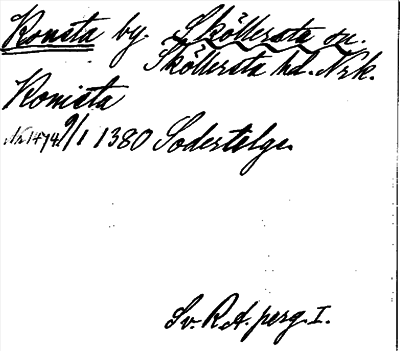 Konsta by. Sköllersta sn.
Sköllersta hd. Nrk.
Konista
Nr 1474 9/1 1380 Sodertelge
Sv. R.A. perg. I.